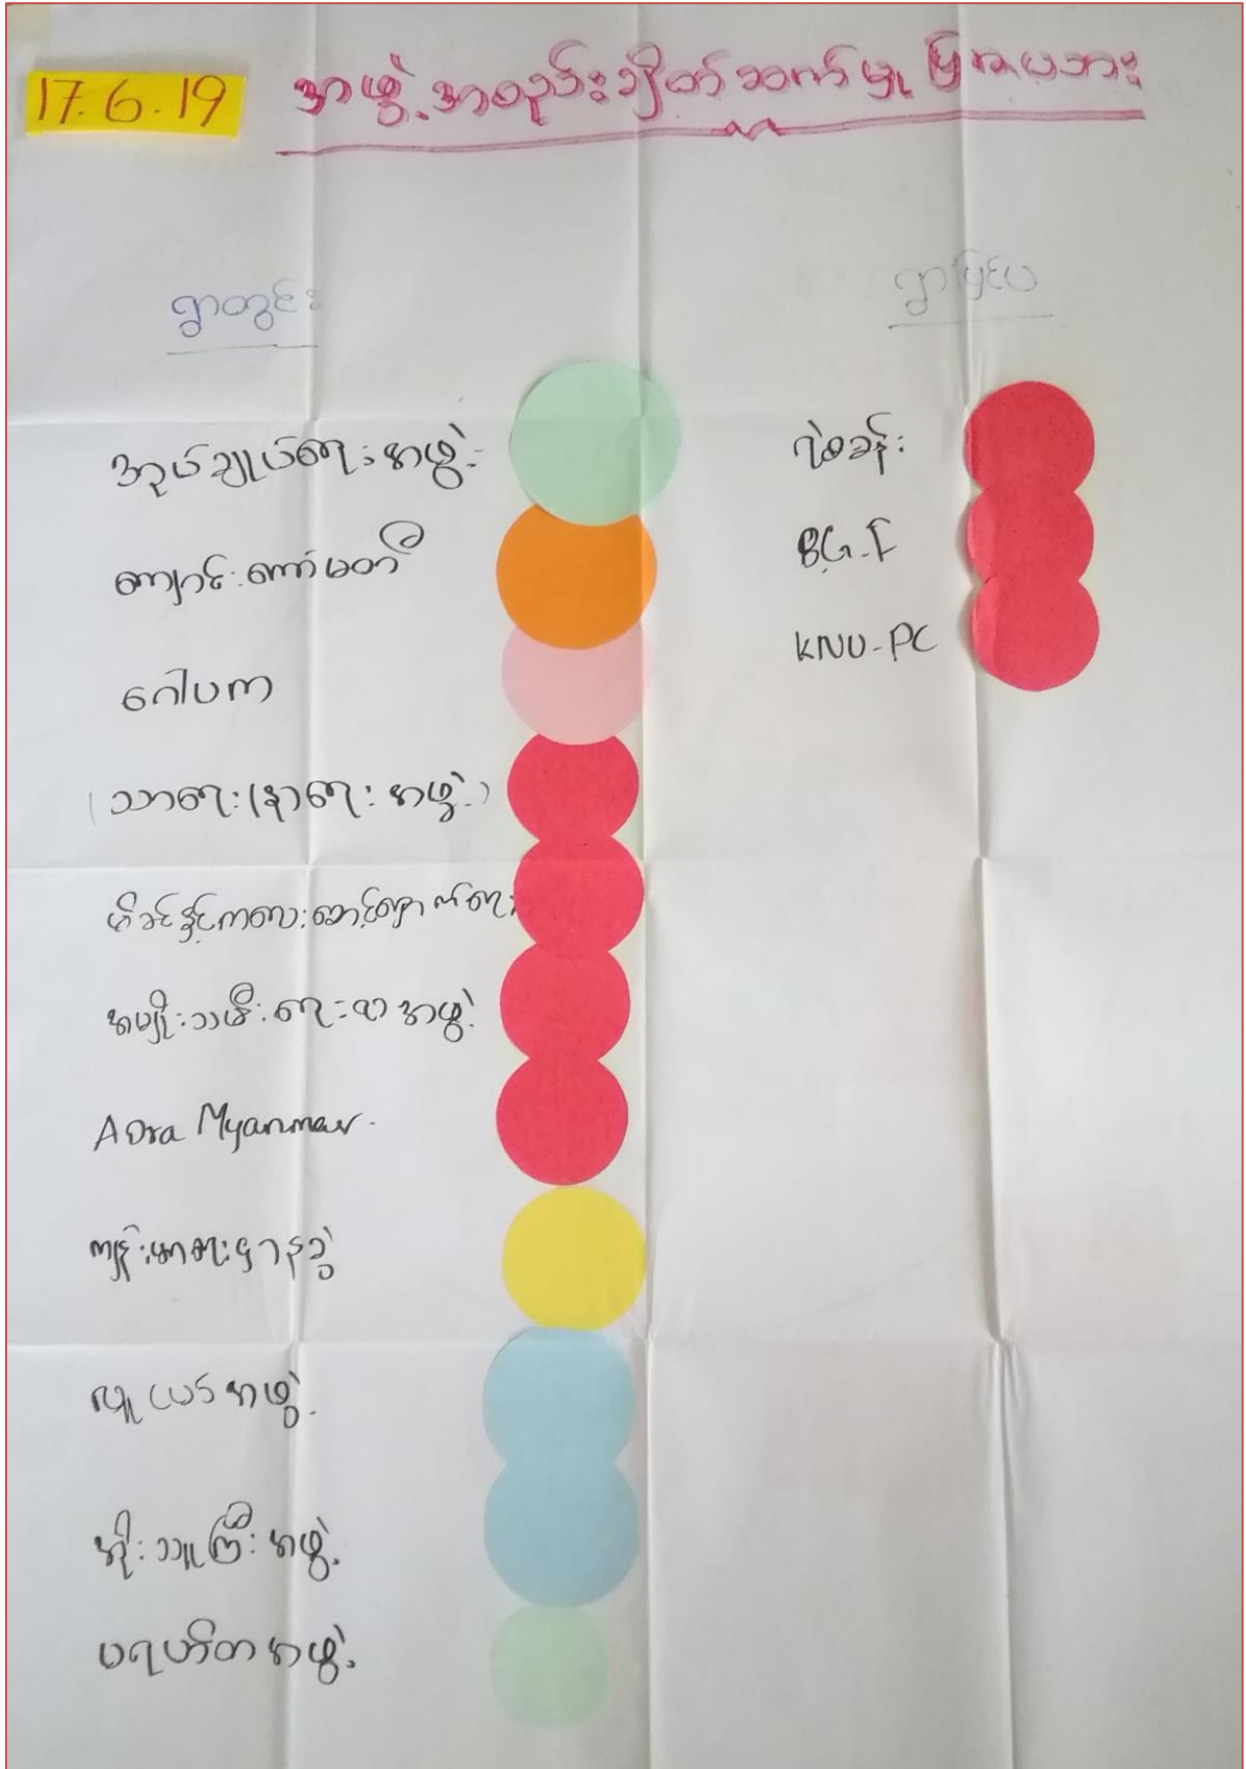 17.6.19
အဖွဲ့အစည်းချိတ်ဆက်မှုပြဇယား
ရွာတွင်း
ရွာပြင်ပ
အုပ်ချုပ်ရေးအဖွဲ့
ကျောင်းကော်မတီ
ဂေါပက
(သာရေး၊နာရေးအဖွဲ့)
မိခင်နှင့်ကလေးစောင့်ရှောက်ရေး
အမျိုးသမီးရေးရာအဖွဲ့
ADra Myanmar
ကျန်းမာရေးဌာနခွဲ
လူငယ်အဖွဲ့
ဘိုးသူကြီးအဖွဲ့
ပရဟိတအဖွဲ့
ရဲစခန်း
B.G.F
KNU-PC